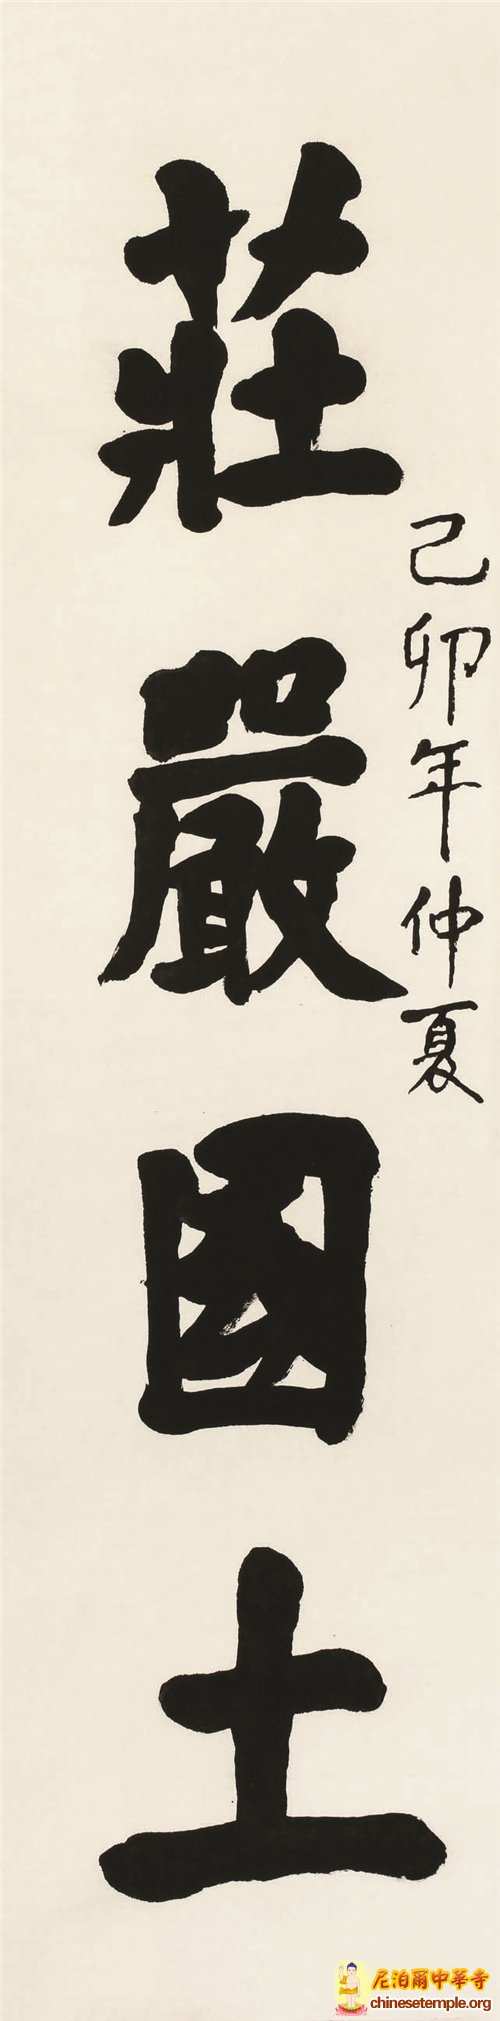 己卯年仲夏
莊嚴國土
尼泊爾中華寺
chinesetemple.org